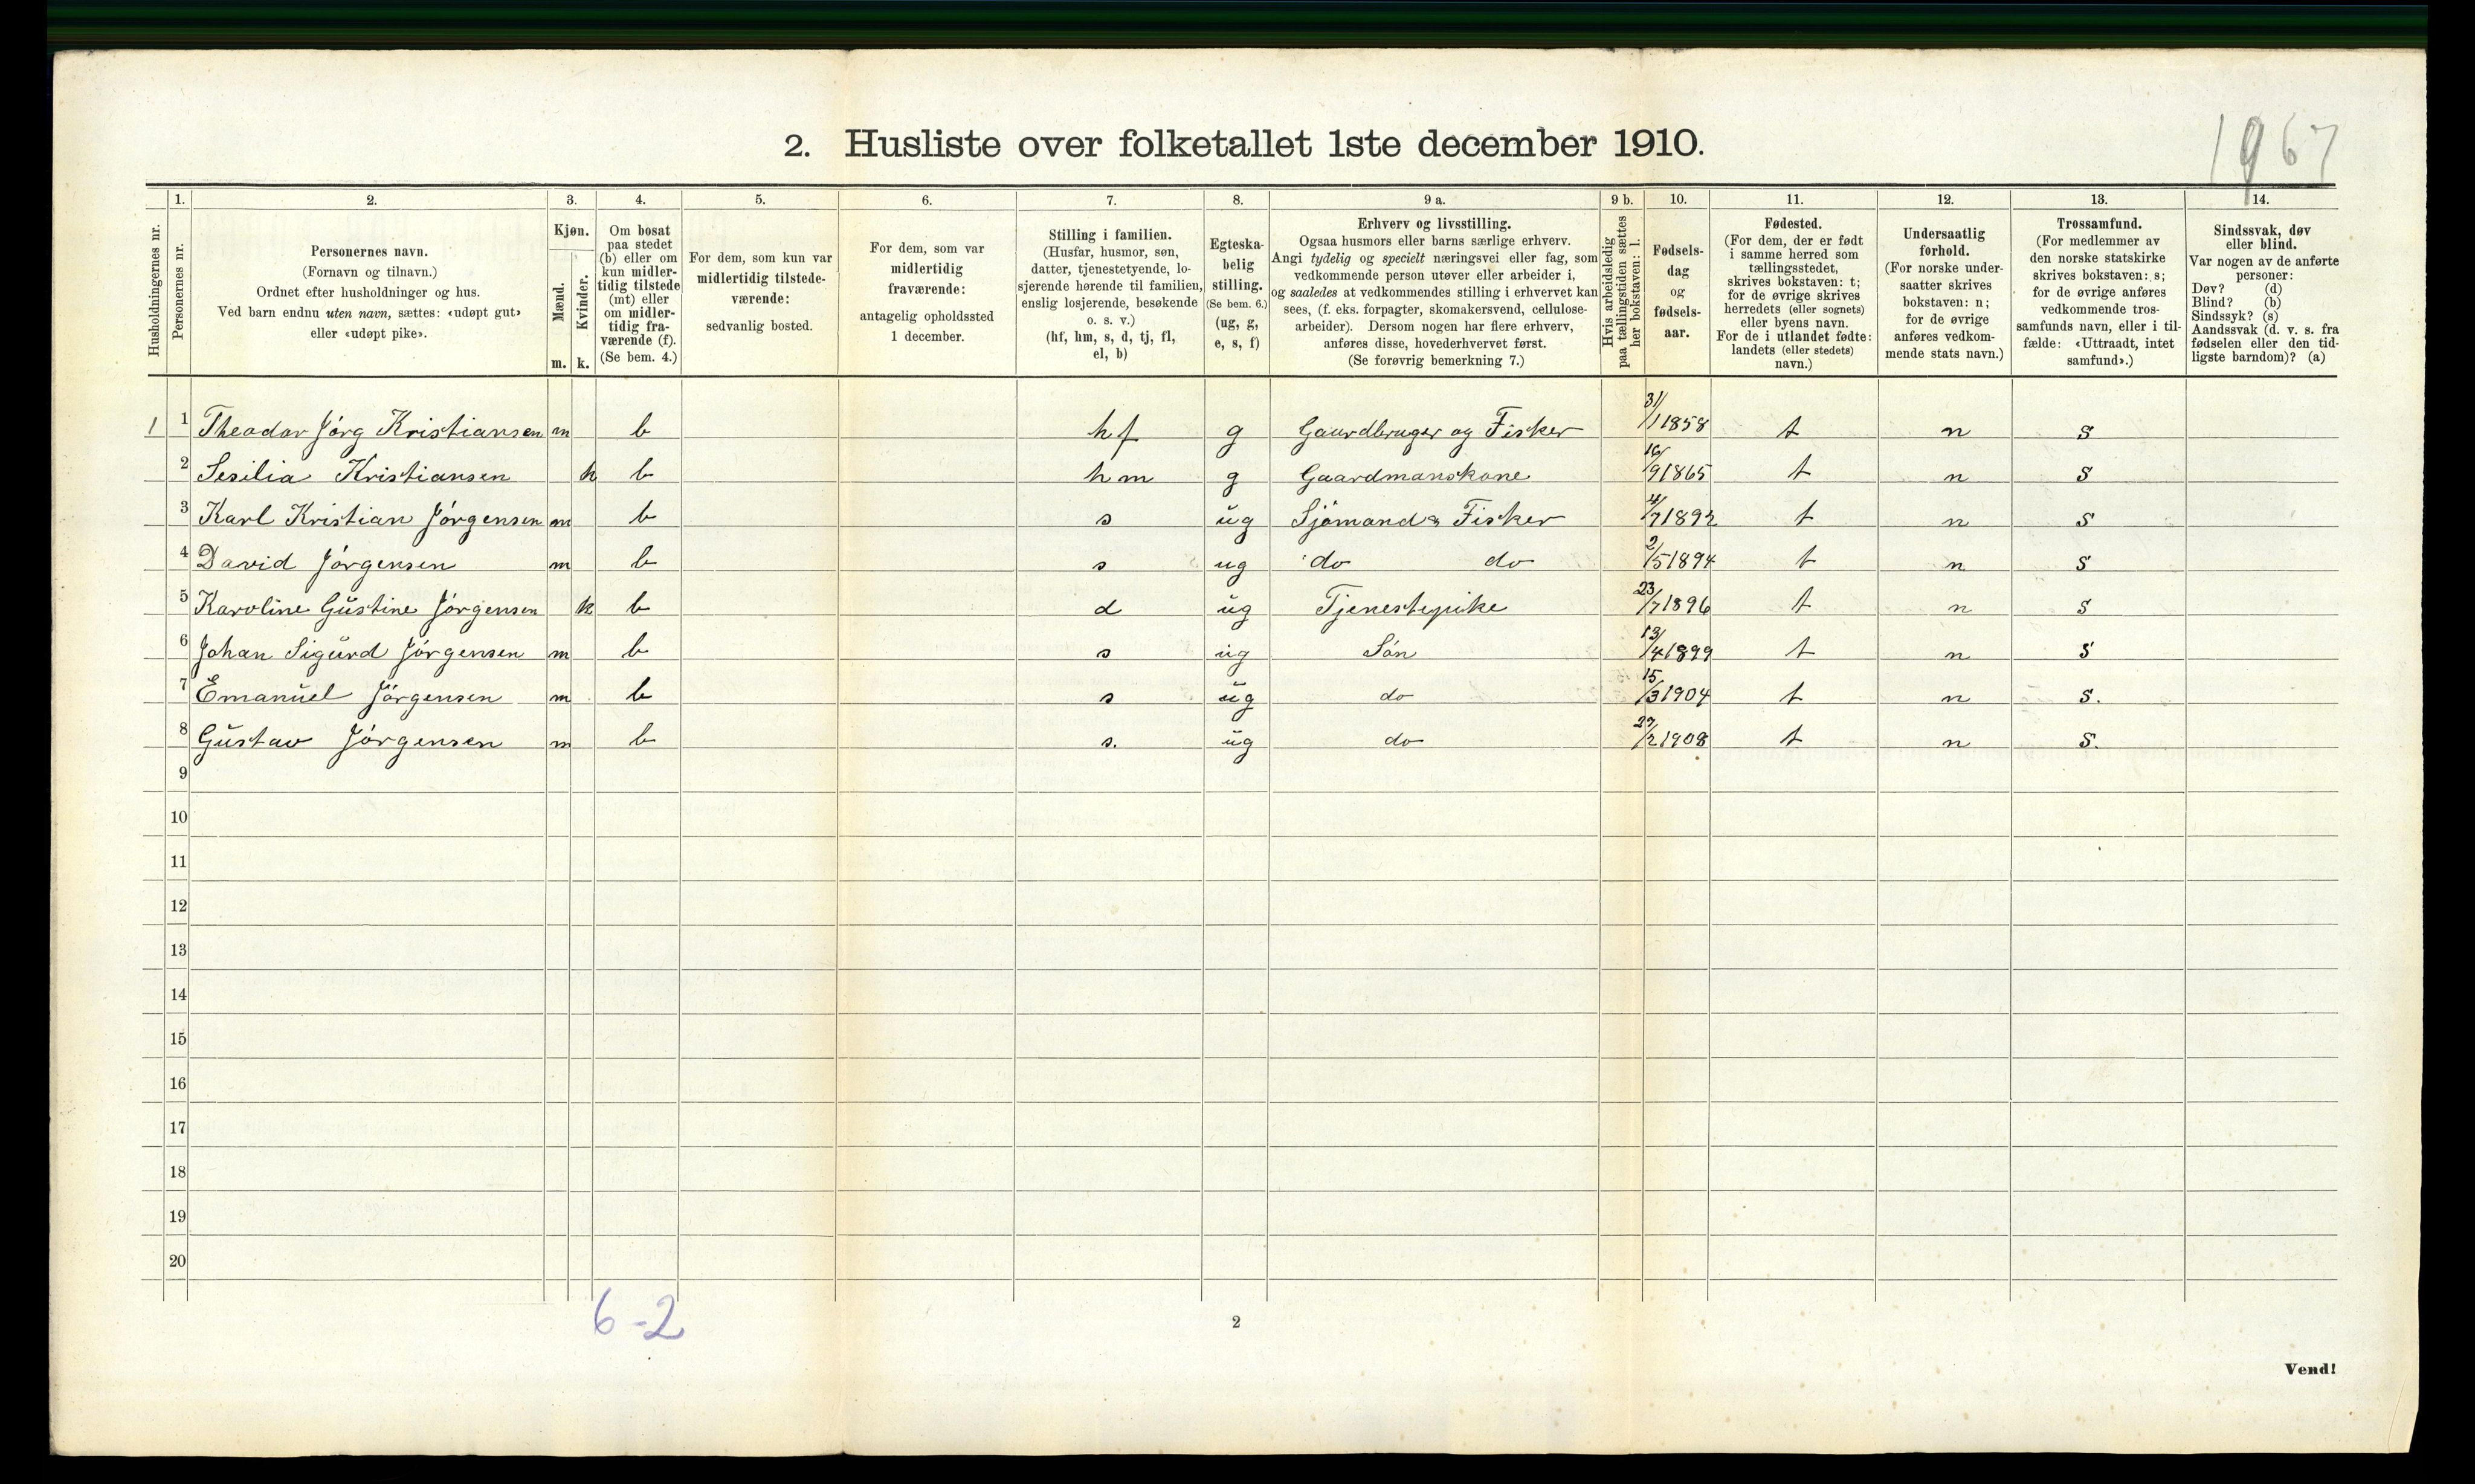 1967
2. Husliste over folketallet 1ste december 1910.
1. 2. 3. 4. 5. 6. 7. 8. 9 a. 9 b. 10. 11. 12. 13. 14.
Husholdningernes nr.
Personernes nr.
Personernes navn.
(Fornavn og tilnavn.)
Ordnet efter husholdninger og hus.
Ved barn endnu uten navn, sættes: «udøpt gut»
eller «udøpt pike».
Kjøn.
Mænd.
m.
Kvinder.
k.
Om bosat
paa stedet
(b) eller om
kun midler-
tidig tilstede
(mt) eller
om midler-
tidig fra-
værende (f).
(Se bem. 4.)
For dem, som kun var
midlertidig tilstede-
værende:
sedvanlig bosted.
For dem, som var
midlertidig
fraværende:
antagelig opholdssted
1 december.
Stilling i familien.
(Husfar, husmor, søn,
datter, tjenestetyende, lo-
sjerende hørende til familien,
enslig losjerende, besøkende
o. s. v.)
(hf, hm, s, d, tj, fl,
el, b)
Egteska-
belig
stilling.
(Se bem. 6.)
(ug, g,
e, s, f)
Erhverv og livsstilling.
Ogsaa husmors eller barns særlige erhverv.
Angi tydelig og specielt næringsvei eller fag, som
vedkommende person utøver eller arbeider i,
og saaledes at vedkommendes stilling i erhvervet kan
sees, (f. eks. forpagter, skomakersvend, cellulose-
arbeider). Dersom nogen har flere erhverv,
anføres disse, hovederhvervet først.
(Se forøvrig bemerkning 7.)
Hvis arbeidsledig
paa tællingstiden sættes
her bokstaven: l.
Fødsels-
dag
og
fødsels-
aar.
Fødested.
(For dem, der er født
i samme herred som
tællingsstedet,
skrives bokstaven: t;
for de øvrige skrives
herredets (eller sognets)
eller byens navn.
For de i utlandet fødte:
landets (eller stedets)
navn.)
Undersaatlig
forhold.
(For norske under-
saatter skrives
bokstaven: n;
for de øvrige
anføres vedkom-
mende stats navn.)
Trossamfund.
(For medlemmer av
den norske statskirke
skrives bokstaven: s;
for de øvrige anføres
vedkommende tros-
samfunds navn, eller i til-
fælde: «Uttraadt, intet
samfund».)
Sindssvak, døv
eller blind.
Var nogen av de anførte
personer:
Døv? (d)
Blind? (b)
Sindssyk? (s)
Aandssvak (d. v. s. fra
fødselen eller den tid-
ligste barndom)? (a)
1 1 Theodor Jörg Kristiansen m b hf g Gaardbruger og Fisker 31/1 1858 t n s
2 Sesilia Kristiansen k b hm g Gaardmanskone 16/9 1865 t n s
3 Karl Kristian Jörgensen m b s ug Sjömand & Fisker 4/7 1892 t n s
4 David Jörgensen m b s ug do do 2/5 1894 t n s
5 Karoline Gustine Jörgensen k b d ug Tjenestepike 23/7 1896 t n s
6 Johan Sigurd Jörgensen m b s ug Sön 13/4 1899 t n s
7 Emanuel Jörgensen m b s ug do 15/3 1904 t n s.
8 Gustav Jörgensen m b s. ug do 27/2 1908 t n s.
9
10
11
12
13
14
15
16
17
18
19
20
6-2
2
Vend!